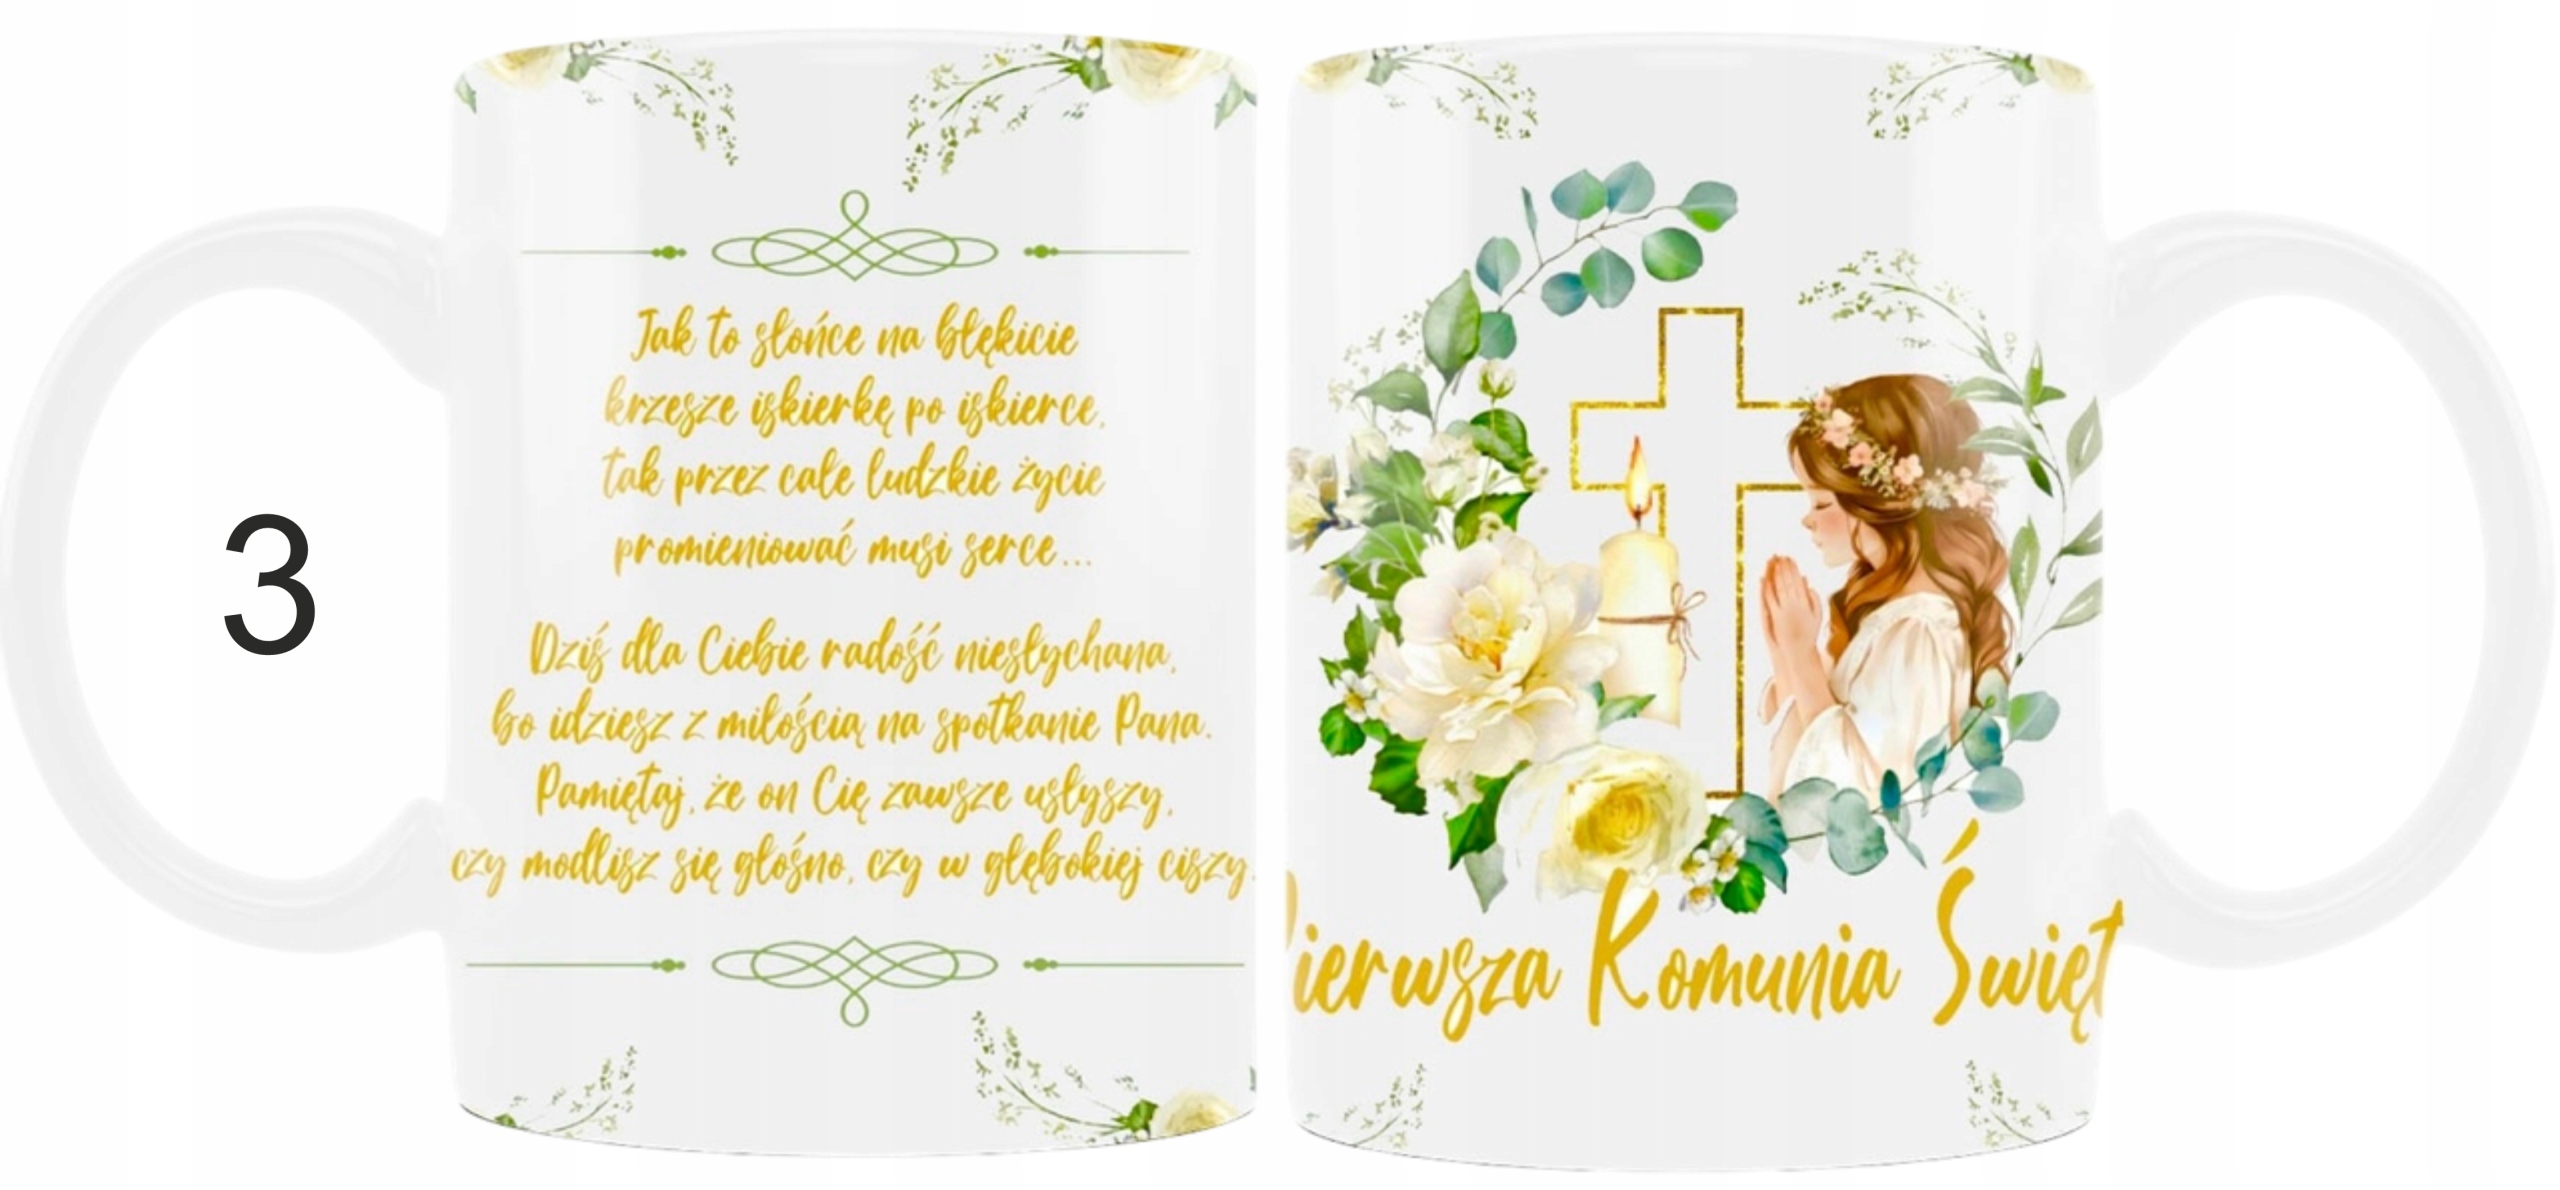 3
Jak to słońce na błękicie
krzesze iskierkę po iskierce,
tak przez całe ludzkie życie
promieniować musi serce...
Dziś dla Ciebie radość niesłychana,
bo idziesz z miłością na spotkanie Pana.
Pamiętaj, że on Cię zawsze usłyszy,
czy modlisz się głośno, czy w głębokiej ciszy.
ierwsza Komunia Święt